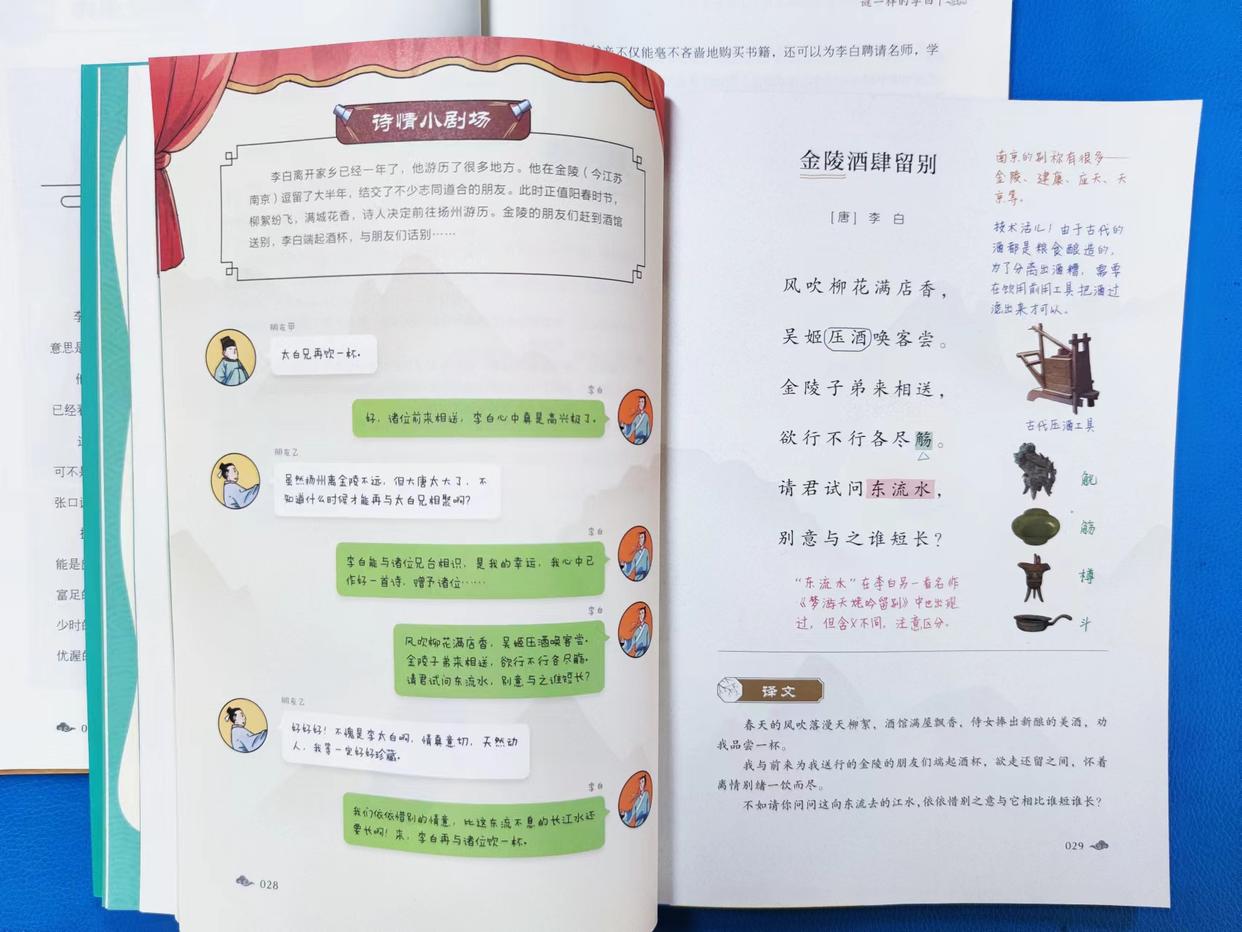 谜一样的李白
不仅能毫不吝啬地购买书籍，还可以为李白聘请名师，学
意思是
已经
可不
张口
能是
富足的
少时的
优渥的
诗情小剧场
李白离开家乡已经一年了，他游历了很多地方。他在金陵（今江苏
南京）逗留了大半年，结交了不少志同道合的朋友。此时正值阳春时节，
柳絮纷飞，满城花香，诗人决定前往扬州游历。金陵的朋友们赶到酒馆
送别，李白端起酒杯，与朋友们话别……
朋友甲
太白兄再饮一杯。
李白
好，诸位前来相送，李白心中真是高兴极了。
朋友乙
虽然扬州离金陵不远，但大唐太大了，不
知道什么时候才能再与太白兄相聚啊？
李白
李白能与诸位兄台相识，是我的幸运，我心中已
作好一首诗，赠予诸位……
李白
风吹柳花满店香，吴姬压酒唤客尝。
金陵子弟来相送，欲行不行各尽觞。
请君试问东流水，别意与之谁短长？
朋友乙
好好好！不愧是李太白啊，情真意切，天然动
人，我等一定好好珍藏。
李白
我们依依惜别的情意，比这东流不息的长江水还
要长啊！来，李白再与诸位饮一杯。
028
金陵酒肆留别
［唐］李 白
风吹柳花满店香，
吴姬压酒唤客尝。
金陵子弟来相送，
欲行不行各尽觞。
请君试问东流水，
别意与之谁短长？
南京的别称有很多——
金陵、建康、应天、天
京等。
技术活儿！由于古代的
酒都是粮食酿造的，
为了分离出酒糟，需要
在饮用前用工具把酒过
滤出来才可以。
古代压酒工具
觥
觞
樽
斗
“东流水”在李白另一首名作
《梦游天姥吟留别》中也出现
过，但含义不同，注意区分。
译文
春天的风吹落漫天柳絮，酒馆满屋飘香，侍女捧出新酿的美酒，劝
我品尝一杯。
我与前来为我送行的金陵的朋友们端起酒杯，欲走还留之间，怀着
离情别绪一饮而尽。
不如请你问问这向东流去的江水，依依惜别之意与它相比谁短谁长？
029